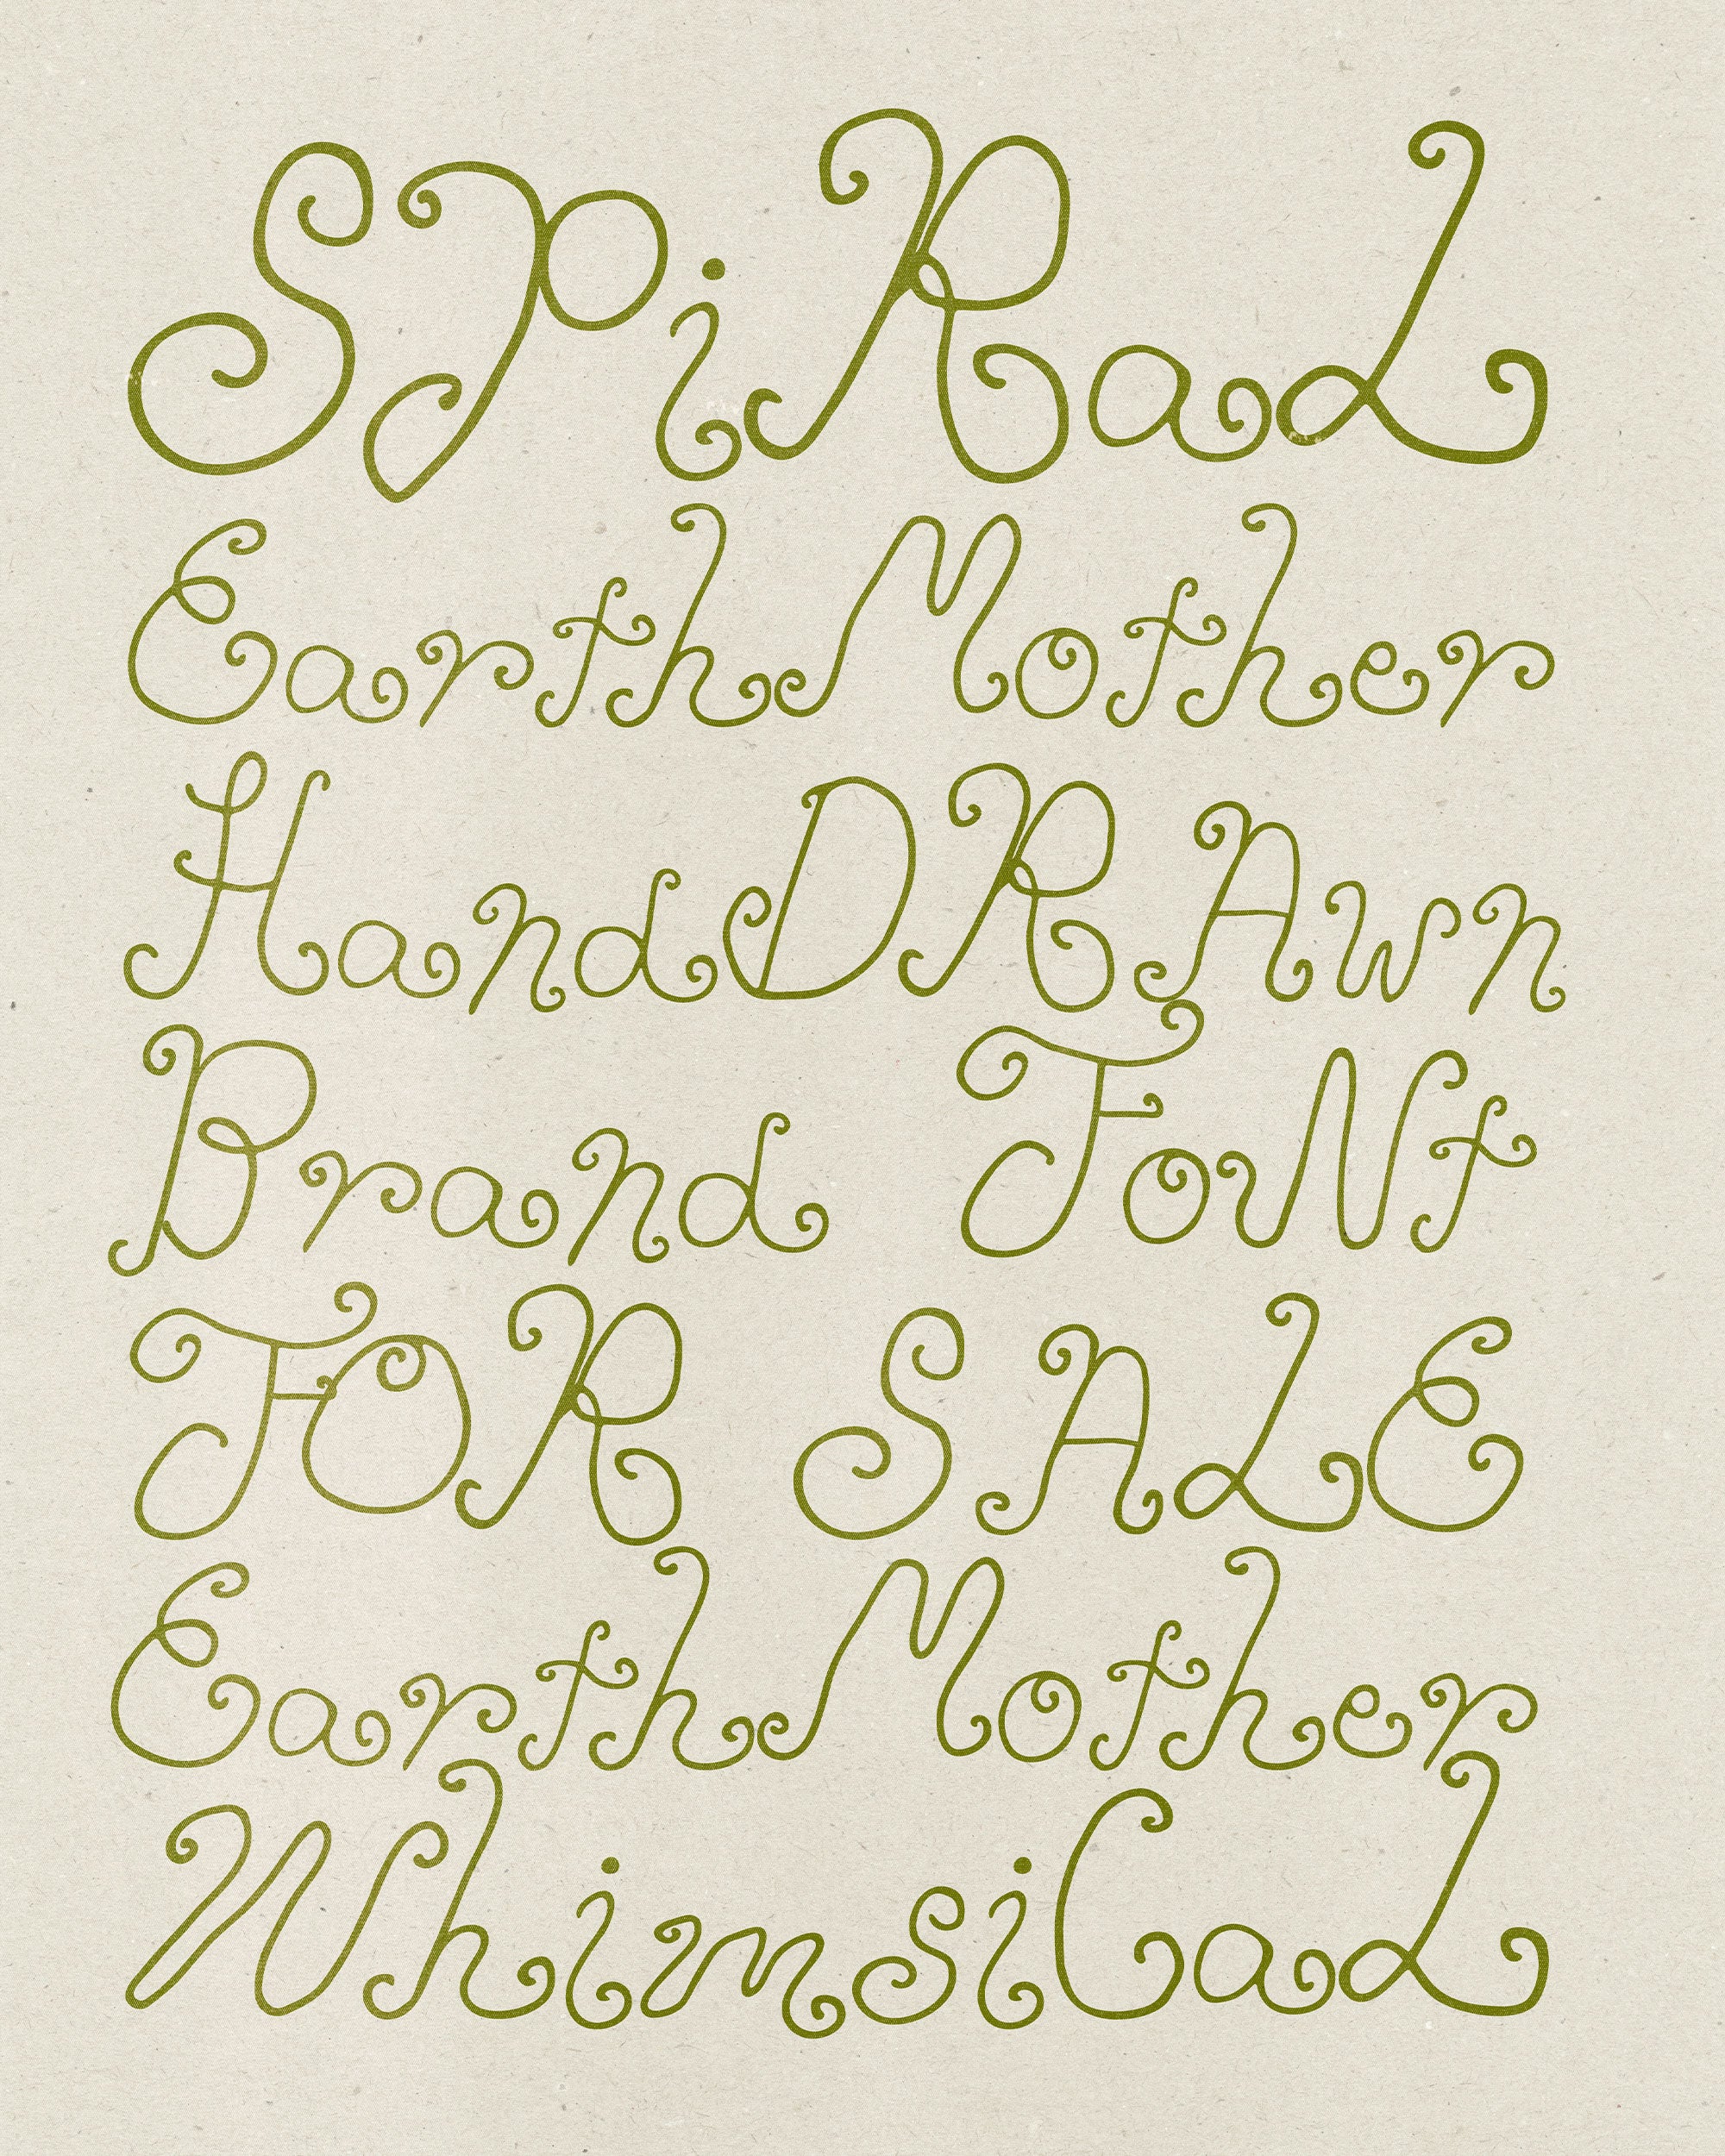 SPiRaL
EarthMother
HandDRAwn
Brand FoNt
FOR SALE
EarthMother
WhimsiCaL